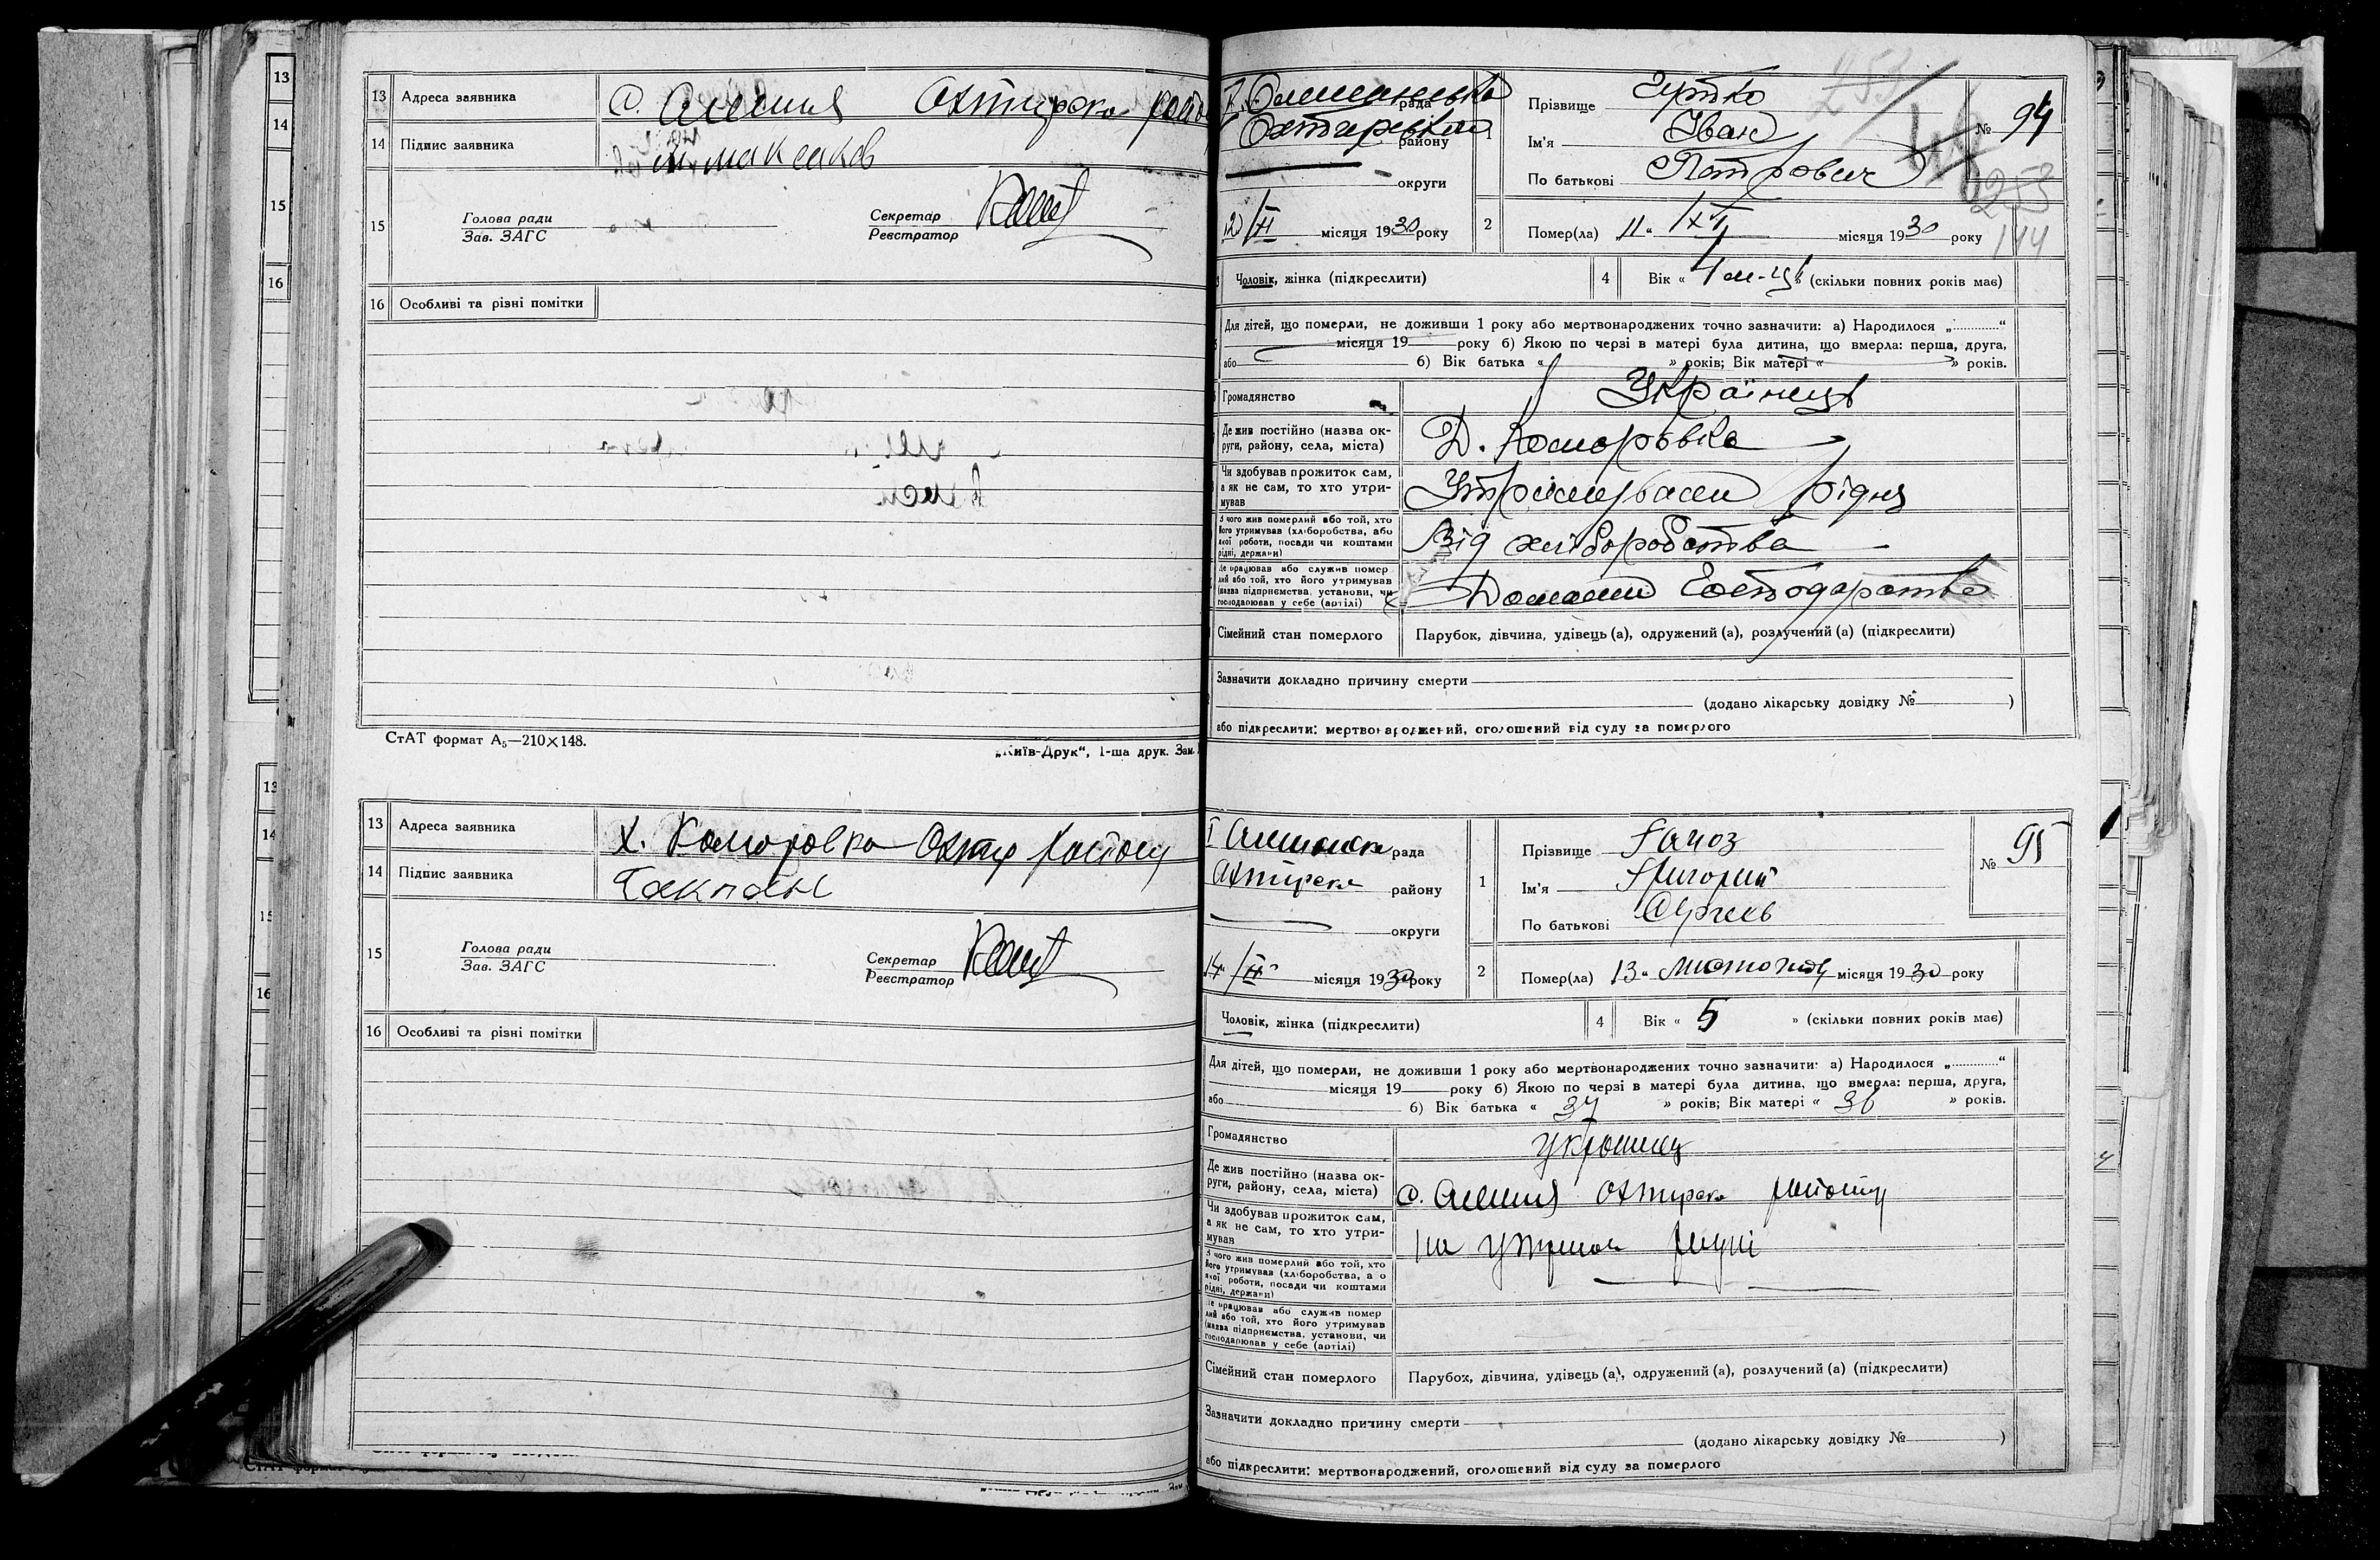 13 Адреса заявника с. Олешня Охтирсько району
14 Підпис заявника
15 Голова ради
Зав. ЗАГС
Секретар
Реєстратор
16 Особливі та різні помітки
СтАТ формат А₅—210×148.
„Київ-Друк“, 1-ша друк. Зам.
13 Адреса заявника х. Коморовка Охтир району
14 Підпис заявника
15 Голова ради
Зав. ЗАГС
Секретар
Реєстратор
16 Особливі та різні помітки
рада
району
округи
12/XI місяця 1930 року
1 Прізвище
Ім'я Іван
По батькові Петрович
№ 94
253
144
2 Помер(ла) „11“ XI місяця 1930 року
Чоловік, жінка (підкреслити)
4 Вік « » (скільки повних років має)
Для дітей, що померли, не доживши 1 року або мертвонароджених точно зазначити: а) Народилося „ “
місяця 19 року б) Якою по черзі в матері була дитина, що вмерла: перша, друга,
або б) Вік батька « » років; Вік матері « » років.
Громадянство Українець
Де жив постійно (назва ок-
руги, району, села, міста) Д. Коморовка
Чи здобував прожиток сам,
а як не сам, то хто утри-
мував Утримували рідня
З чого жив померлий або той, хто
його утримував (хліборобства, або
якої роботи, посади чи коштами
рідні, держави) Від хліборобства
Де працював або служив помер
лий або той, хто його утримував
(назва підприємства, установи, чи
господарював у себе (артілі) Господарстві
Сімейний стан померлого Парубок, дівчина, удівець (а), одружений (а), розлучений (а) (підкреслити)
Зазначити докладно причину смерти
(додано лікарську довідку № )
або підкреслити: мертвонароджений, оголошений від суду за померлого
рада
Охтирськ району
округи
14/XI місяця 1930 року
1 Прізвище
Ім'я Григорий
По батькові
№ 95
2 Помер(ла) 13“ листопад місяця 1930 року
Чоловік, жінка (підкреслити)
4 Вік « 5 » (скільки повних років має)
Для дітей, що померли, не доживши 1 року або мертвонароджених точно зазначити: а) Народилося „ “
місяця 19 року б) Якою по черзі в матері була дитина, що вмерла: перша, друга,
або б) Вік батька « 37 » років; Вік матері « 36 » років.
Громадянство українец
Де жив постійно (назва ок-
руги, району, села, міста) с. Олешня Охтирськ району
Чи здобував прожиток сам,
а як не сам, то хто утри-
мував на утриман рідні
З чого жив померлий або той, хто
його утримував (хліборобства, або
якої роботи, посади чи коштами
рідні, держави)
Де працював або служив помер
лий або той, хто його утримував
(назва підприємства, установи, чи
господарював у себе (артілі)
Сімейний стан померлого Парубок, дівчина, удівець (а), одружений (а), розлучений (а) (підкреслити)
Зазначити докладно причину смерти
(додано лікарську довідку № )
або підкреслити: мертвонароджений, оголошений від суду за померлого